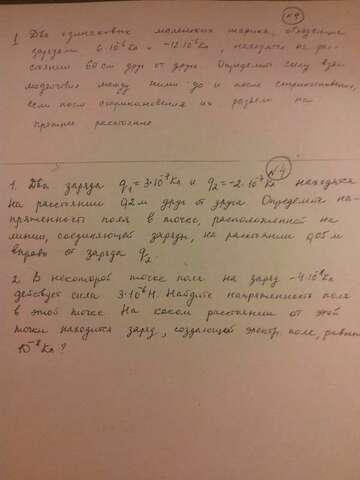 №4
1 Два одинаковых маленьких шарика, обладающие
зарядами 6·10⁻⁶ Кл и -12·10⁻⁶ Кл, находятся на рас-
стоянии 60 см друг от друга. Определите силу взаи-
модействия между ними до и после соприкосновения,
если после соприкосновения их развели на
прежнее расстояние
№4
1. Два заряда q₁ = 3·10⁻⁷ Кл и q₂ = -2·10⁻⁷ Кл находятся
на расстоянии 0,2 м друг от друга. Определите на-
пряженность поля в точке, расположенной на
линии, соединяющей заряды, на расстоянии 0,05 м
вправо от заряда q₂.
2. В некоторой точке поля на заряд -4·10⁻⁹ Кл
действует сила 3·10⁻⁶ Н. Найдите напряженность поля
в этой точке. На каком расстоянии от этой
точки находится заряд, создающий электр. поле,
10⁻⁸ Кл?